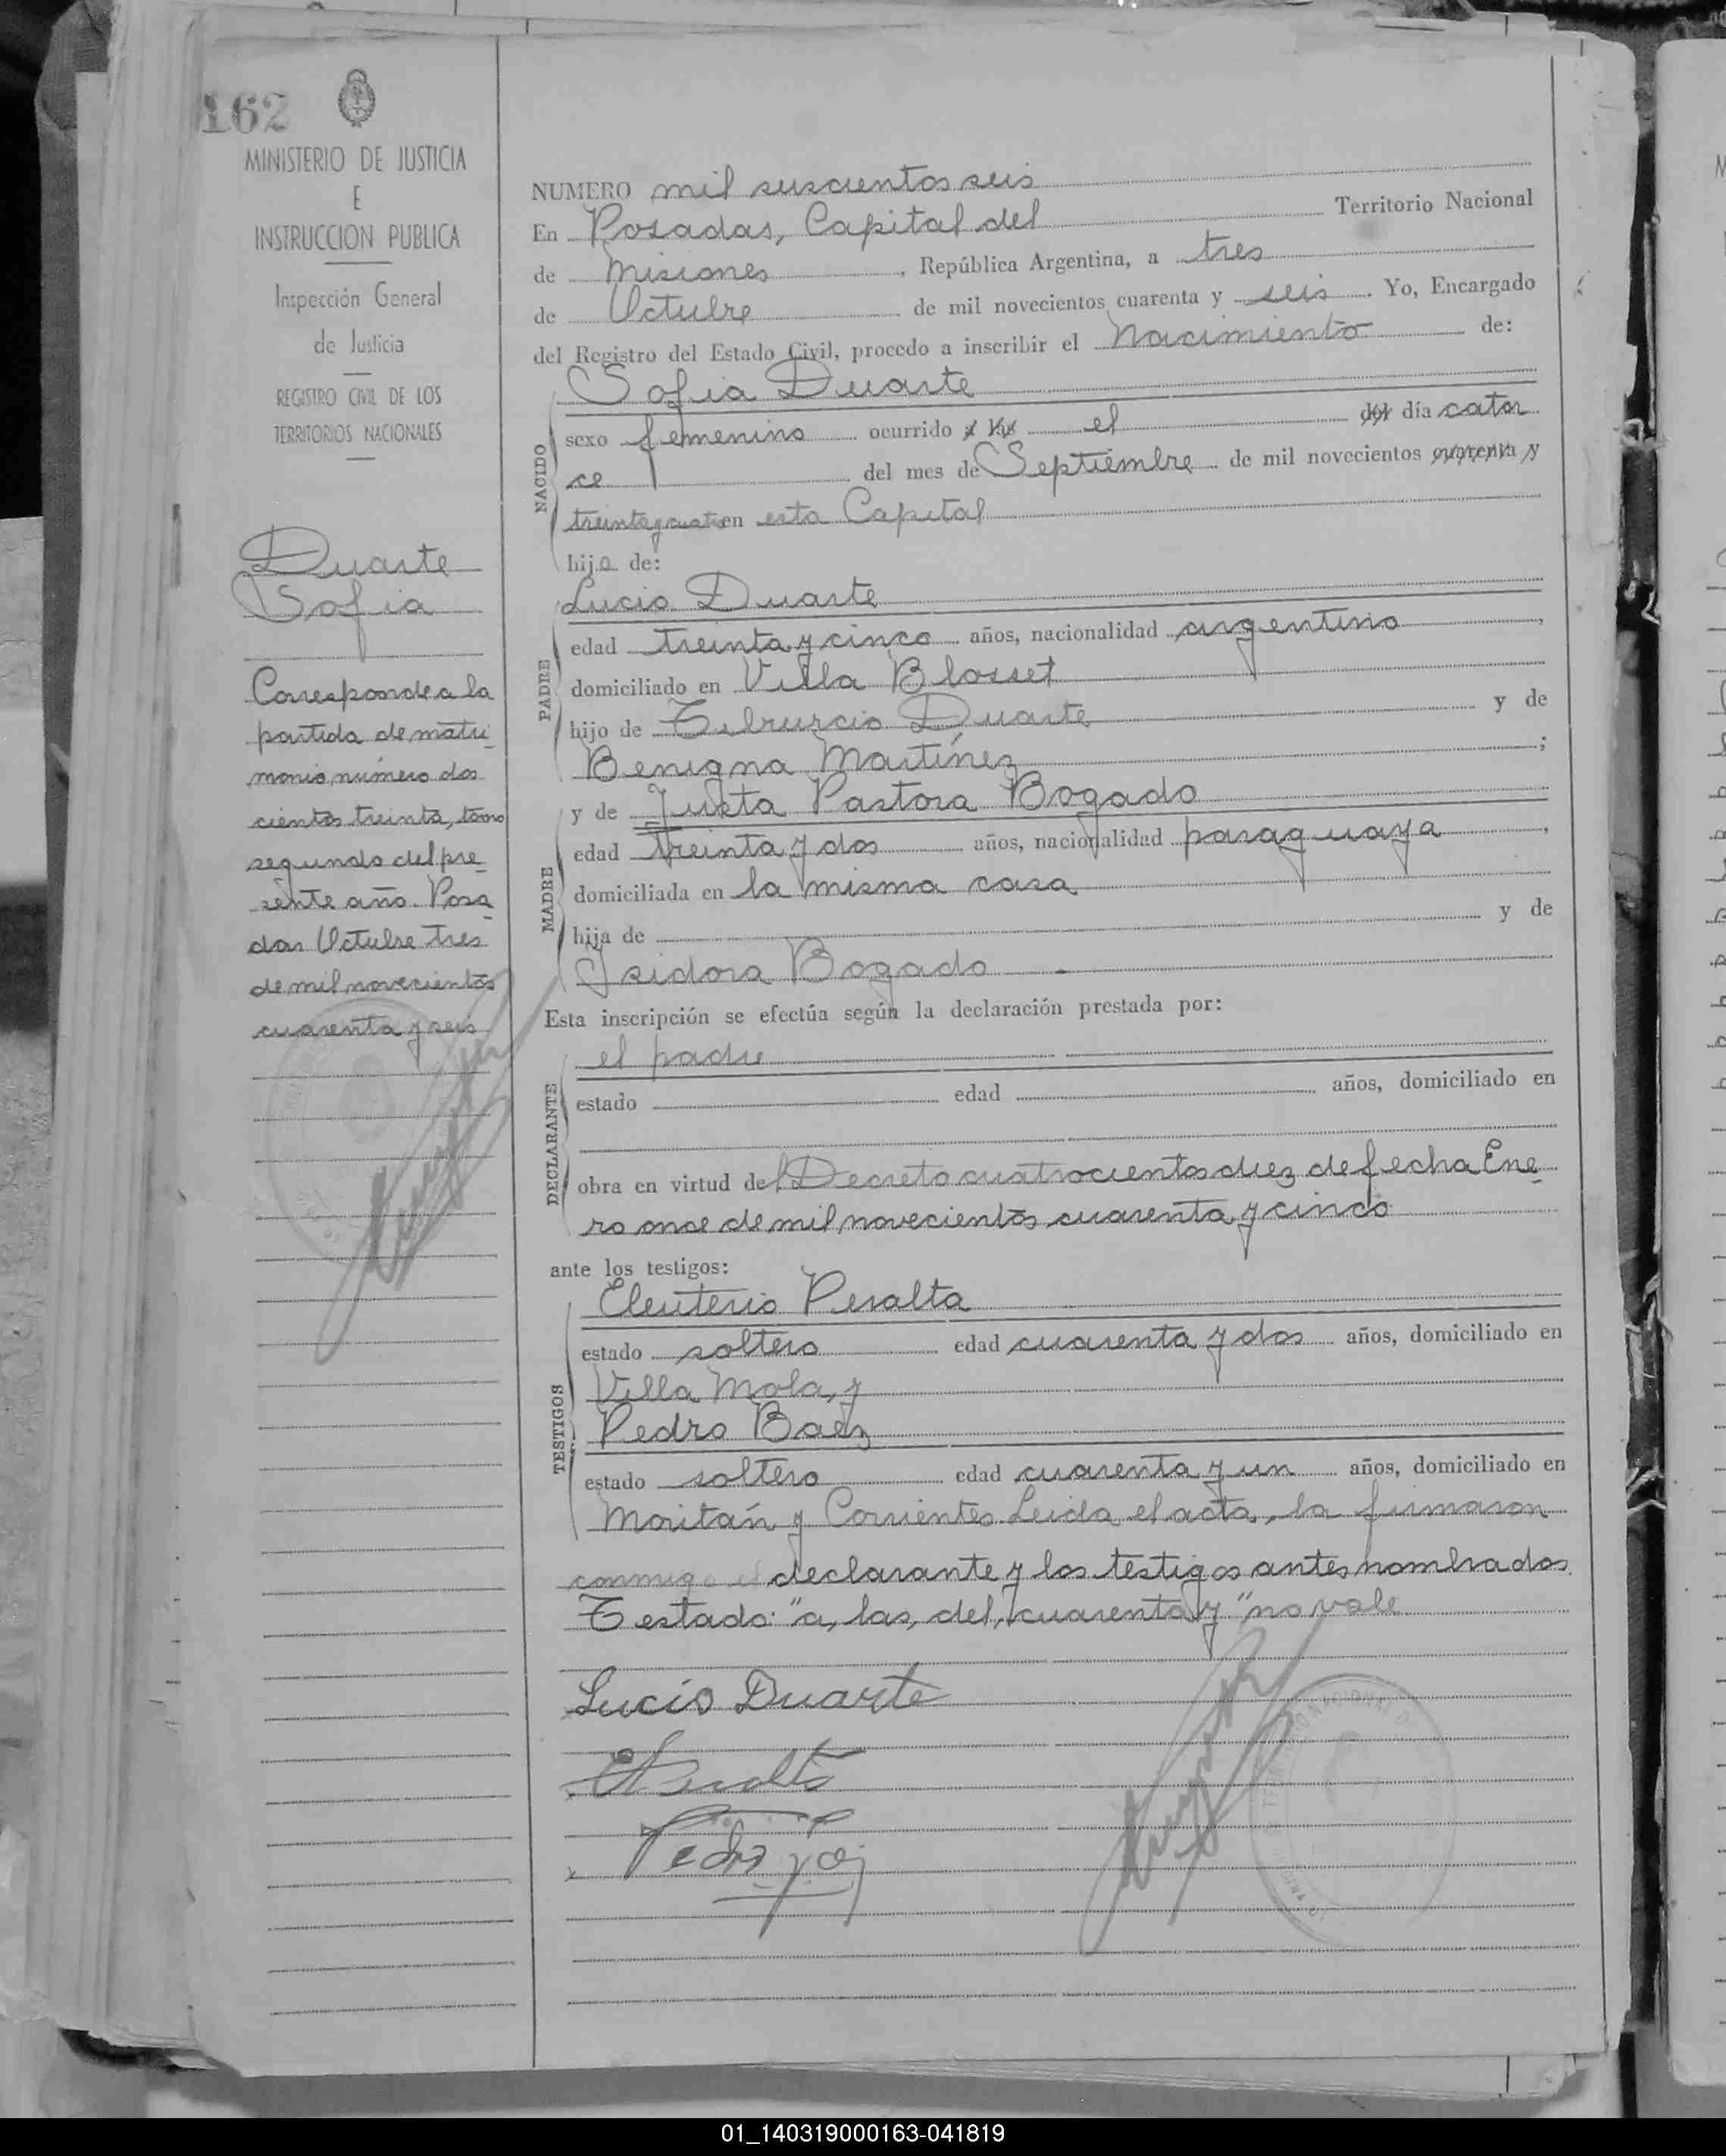 162
MINISTERIO DE JUSTICIA
E
INSTRUCCION PUBLICA
Inspección General
de Justicia
REGISTRO CIVIL DE LOS
TERRITORIOS NACIONALES
Duarte
Sofia
Corresponde a la
partida de matri
monio número dos
cientos treinta, tomo
segundo del pre
sente año. Posa
das Octubre tres
de mil novecientos
cuarenta y seis
NUMERO mil seiscientos seis
En Posadas, Capital del Territorio Nacional
de Misiones, República Argentina, a tres
de Octubre de mil novecientos cuarenta y seis. Yo, Encargado
del Registro del Estado Civil, procedo a inscribir el Nacimiento de:
NACIDO
Sofia Duarte
sexo femenino ocurrido a las el del día cator
ce del mes de Septiembre de mil novecientos cuarenta y
treinta y cuatro en esta Capital
hija de:
PADRE
Lucio Duarte
edad treinta y cinco años, nacionalidad argentino,
domiciliado en Villa Blosset
hijo de Tiburcio Duarte y de
Benigna Martínez;
MADRE
y de Justa Pastora Bogado
edad treinta y dos años, nacionalidad paraguaya,
domiciliada en la misma casa
hija de y de
Isidora Bogado
Esta inscripción se efectúa según la declaración prestada por:
DECLARANTE
el padre
estado edad años, domiciliado en
obra en virtud del Decreto cuatrocientos diez de fecha Ene
ro once de mil novecientos cuarenta y cinco
ante los testigos:
TESTIGOS
Eleuterio Peralta
estado soltero edad cuarenta y dos años, domiciliado en
Villa Mola, y
Pedro Baez
estado soltero edad cuarenta y un años, domiciliado en
Moritán y Corrientes Leida el acta, la firmaron
conmigo el declarante y los testigos antes nombrados
Testado: "a, las, del, cuarenta y" no vale
Lucio Duarte
Peralta
Pedro
01_140319000163-041819